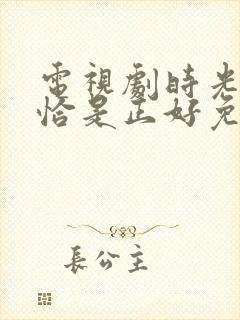 電視劇時光
恰是正好免
長公主